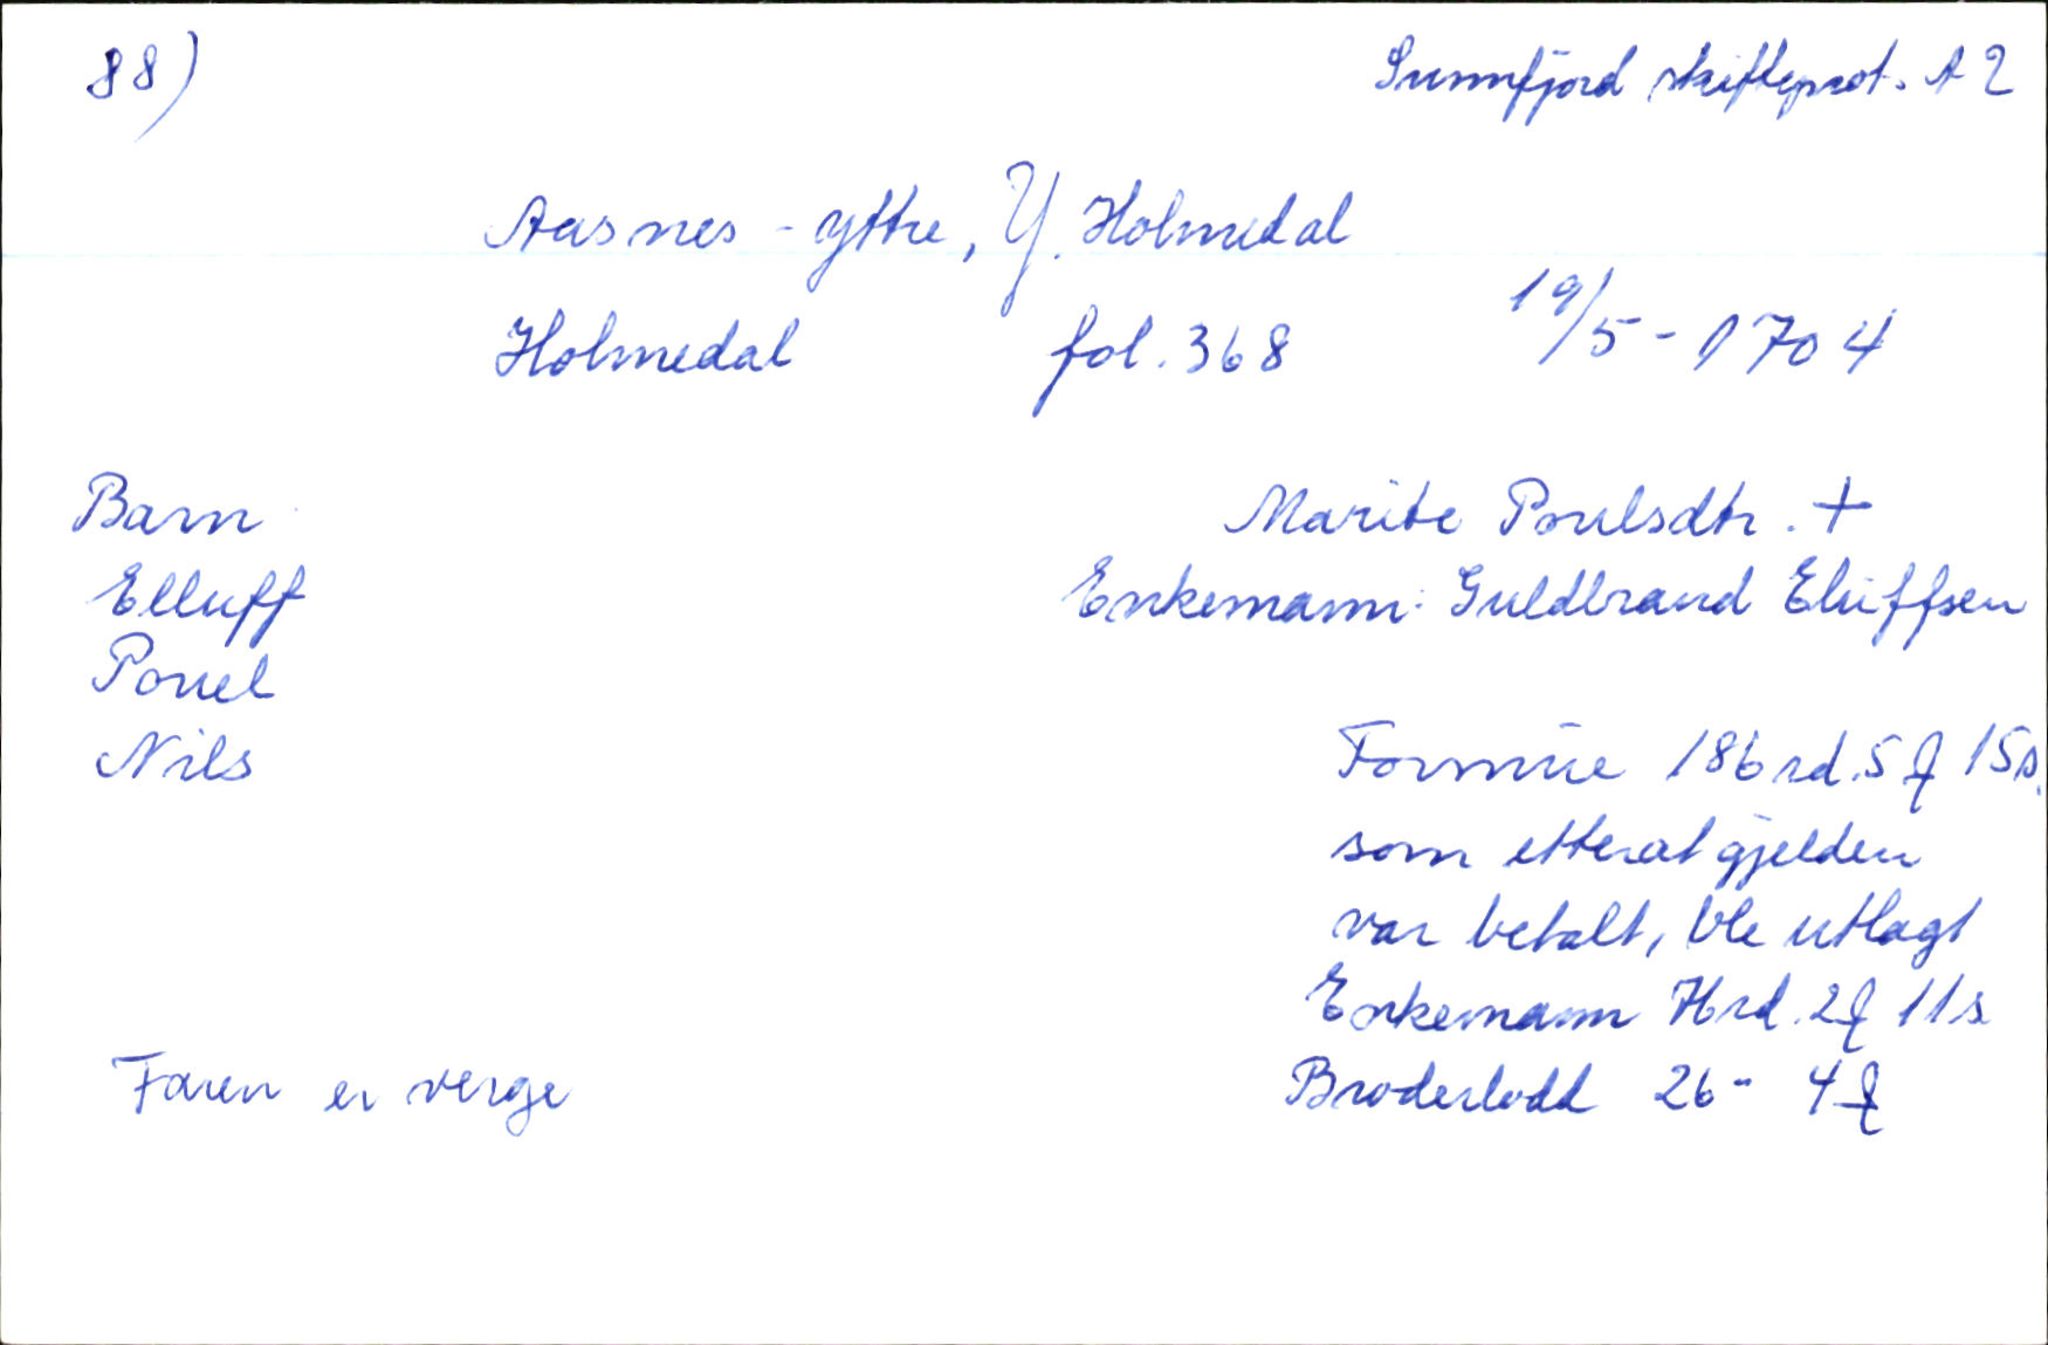 88) Sunnfjord skifteprot. A 2
Aasnes - yttre, Y. Holmedal
Holmedal fol. 368 19/5 - 1704
Barn Marite Poulsdtr. +
Elluff Enkemann: Guldbrand Eluffsen
Pouel
Nils Formue 186 rd. 5 ƒ 15 s.
som etterat gjelden
var betalt, ble utlagt
Enkemann rd. 2 ƒ 11 s
Faren er verge Broderlodd 26 - 4 ƒ